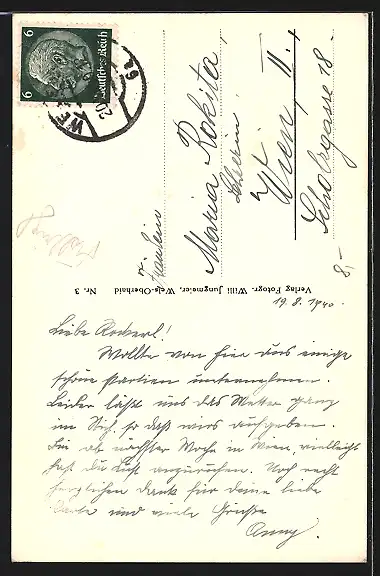 6 6
Deutsches Reich
WE
20
19
Fräulein
Maria Rokita,
Wien, II.
Scholzgasse 18.
8,-
Verlag Fotogr. Willi Jungmeier, Wels-Oberhaid Nr. 3
19.8.1940.
Liebe
Wollte von hier aus einige
schöne Partien unternehmen.
Leider läßt uns das Wetter ganz
im Stich, so daß wirs aufgeben.
Bin ab nächster Woche in Wien, vielleicht
hast du Lust anzurufen. Noch recht
herzlichen Dank für deine liebe
Karte und viele Grüße
Anny.